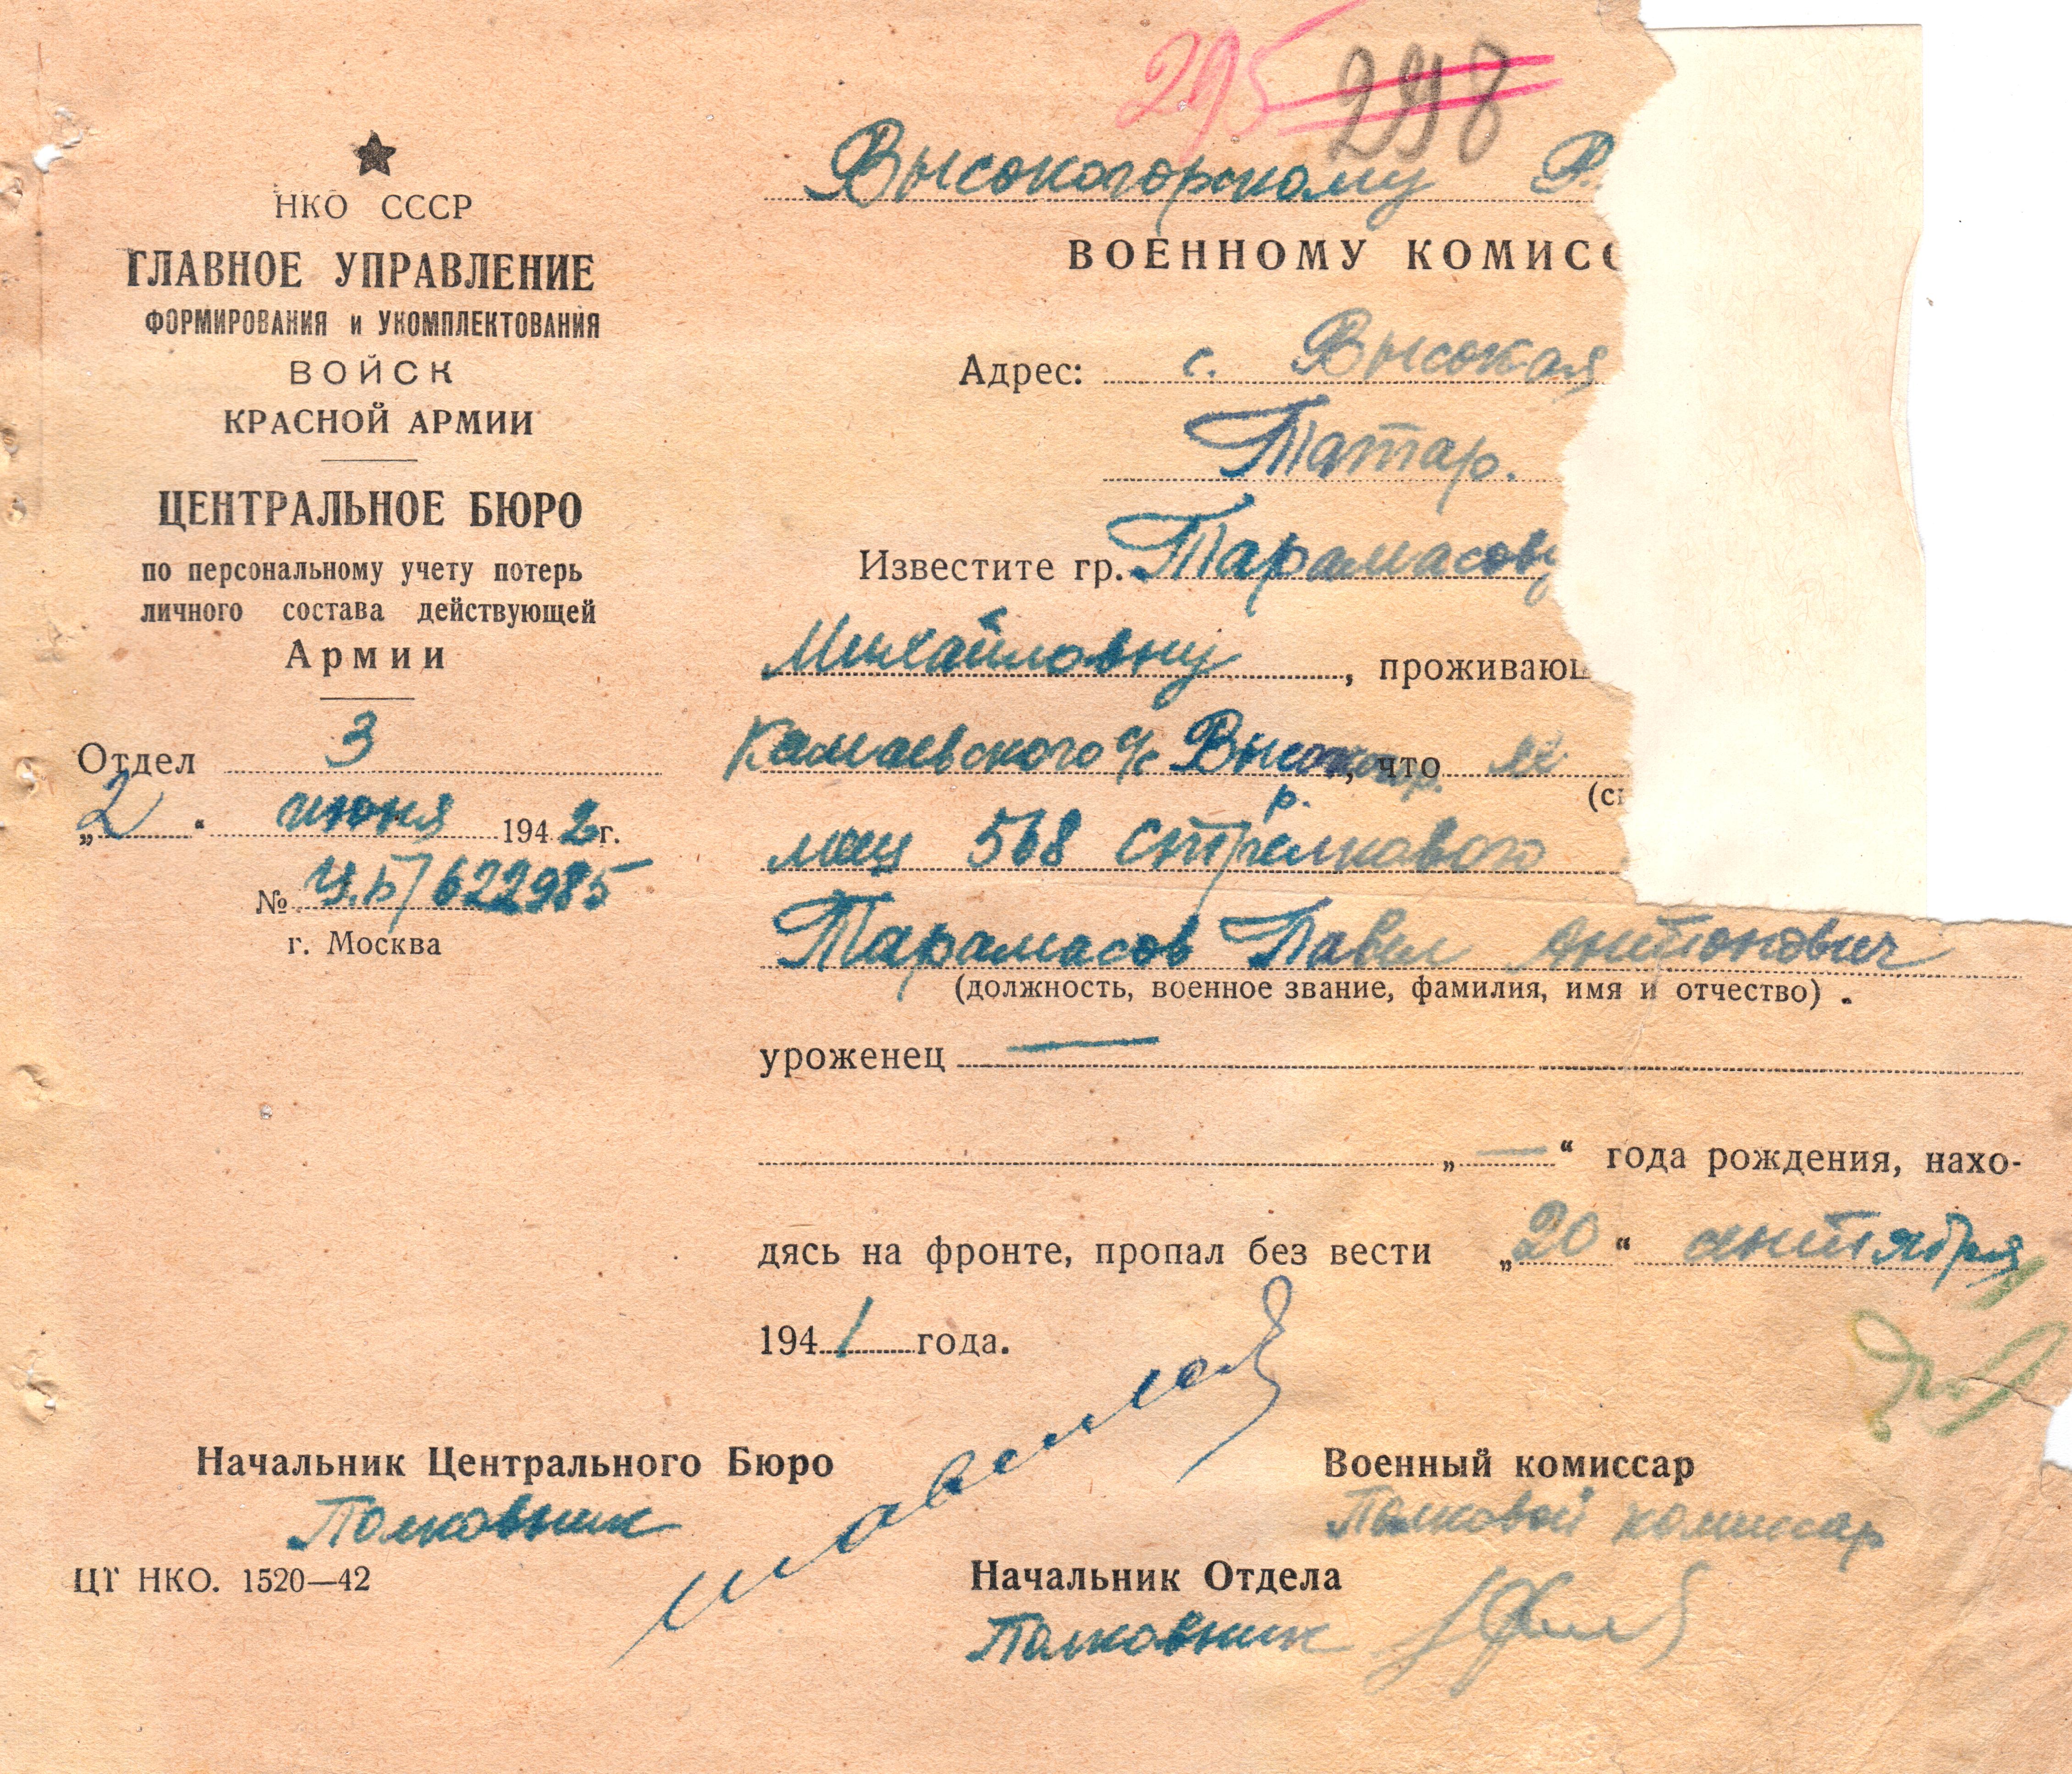 295 298
★
НКО СССР
ГЛАВНОЕ УПРАВЛЕНИЕ
ФОРМИРОВАНИЯ и УКОМПЛЕКТОВАНИЯ
ВОЙСК
КРАСНОЙ АРМИИ
ЦЕНТРАЛЬНОЕ БЮРО
по персональному учету потерь
личного состава действующей
Армии
Отдел 3
„2“ июня 1942 г.
№ Ц.Б/622985
г. Москва
Высокогорскому Р.
ВОЕННОМУ КОМИСС
Адрес: с. Высокая
Татар.
Известите гр. Тарамасову
Михайловну, проживающ
Камаевского с/с Высокогор. р., что
(с
568 стрелкового
Тарамасов Павел Антонович
(должность, военное звание, фамилия, имя и отчество).
уроженец —
„—“ года рождения, нахо-
дясь на фронте, пропал без вести „20“ сентября
1941 года.
Начальник Центрального Бюро
Полковник
Военный комиссар
Полковой комиссар
Начальник Отдела
Полковник
ЦТ НКО. 1520—42